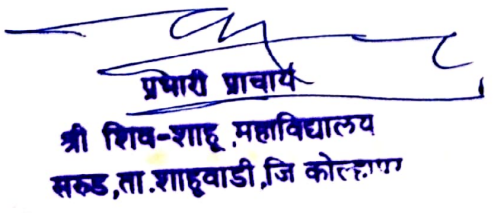 प्रभारी प्राचार्य
श्री शिव-शाहू महाविद्यालय
सरुड,ता.शाहूवाडी,जि कोल्हापूर